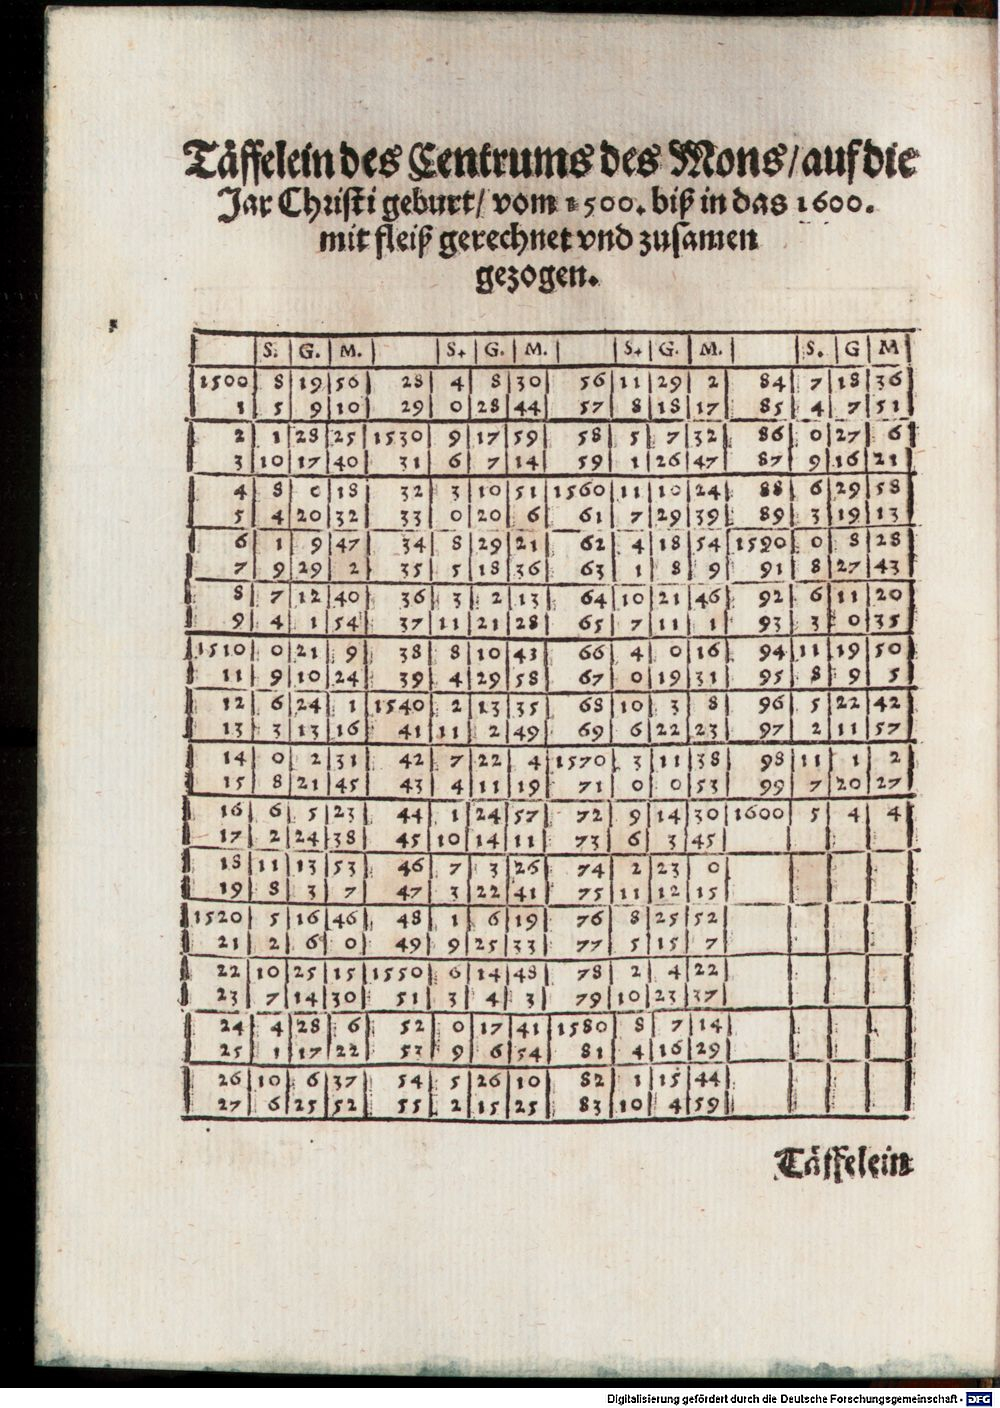 Täffelein des Centrums des Mons/auf die
Jar Christi geburt/ vom 1500. biß in das 1600.
mit fleiß gerechnet vnd zusamen
gezogen.
S. G. M. S. G. M. S. G. M. S. G M
1500 8 19 56 28 4 8 30 56 11 29 2 84 7 18 36
1 5 9 10 29 0 28 44 57 8 18 17 85 4 7 51
2 1 28 25 1530 9 17 59 58 5 7 32 86 0 27 6
3 10 17 40 31 6 7 14 59 1 26 47 87 9 16 21
4 8 0 18 32 3 10 51 1560 11 10 24 88 6 29 58
5 4 20 32 33 0 20 6 61 7 29 39 89 3 19 13
6 1 9 47 34 8 29 21 62 4 18 54 1590 0 8 28
7 9 29 2 35 5 18 36 63 1 8 9 91 8 27 43
8 7 12 40 36 3 2 13 64 10 21 46 92 6 11 20
9 4 1 54 37 11 21 28 65 7 11 1 93 3 0 35
1510 0 21 9 38 8 10 43 66 4 0 16 94 11 19 50
11 9 10 24 39 4 29 58 67 0 19 31 95 8 9 5
12 6 24 1 1540 2 13 35 68 10 3 8 96 5 22 42
13 3 13 16 41 11 2 49 69 6 22 23 97 2 11 57
14 0 2 31 42 7 22 4 1570 3 11 38 98 11 1 2
15 8 21 45 43 4 11 19 71 0 0 53 99 7 20 27
16 6 5 23 44 1 24 57 72 9 14 30 1600 5 4 4
17 2 24 38 45 10 14 11 73 6 3 45
18 11 13 53 46 7 3 26 74 2 23 0
19 8 3 7 47 3 22 41 75 11 12 15
1520 5 16 46 48 1 6 19 76 8 25 52
21 2 6 0 49 9 25 33 77 5 15 7
22 10 25 15 1550 6 14 48 78 2 4 22
23 7 14 30 51 3 4 3 79 10 23 37
24 4 28 6 52 0 17 41 1580 8 7 14
25 1 17 22 53 9 6 54 81 4 16 29
26 10 6 37 54 5 26 10 82 1 15 44
27 6 25 52 55 2 15 25 83 10 4 59
Täffelein
Digitalisierung gefördert durch die Deutsche Forschungsgemeinschaft - DFG